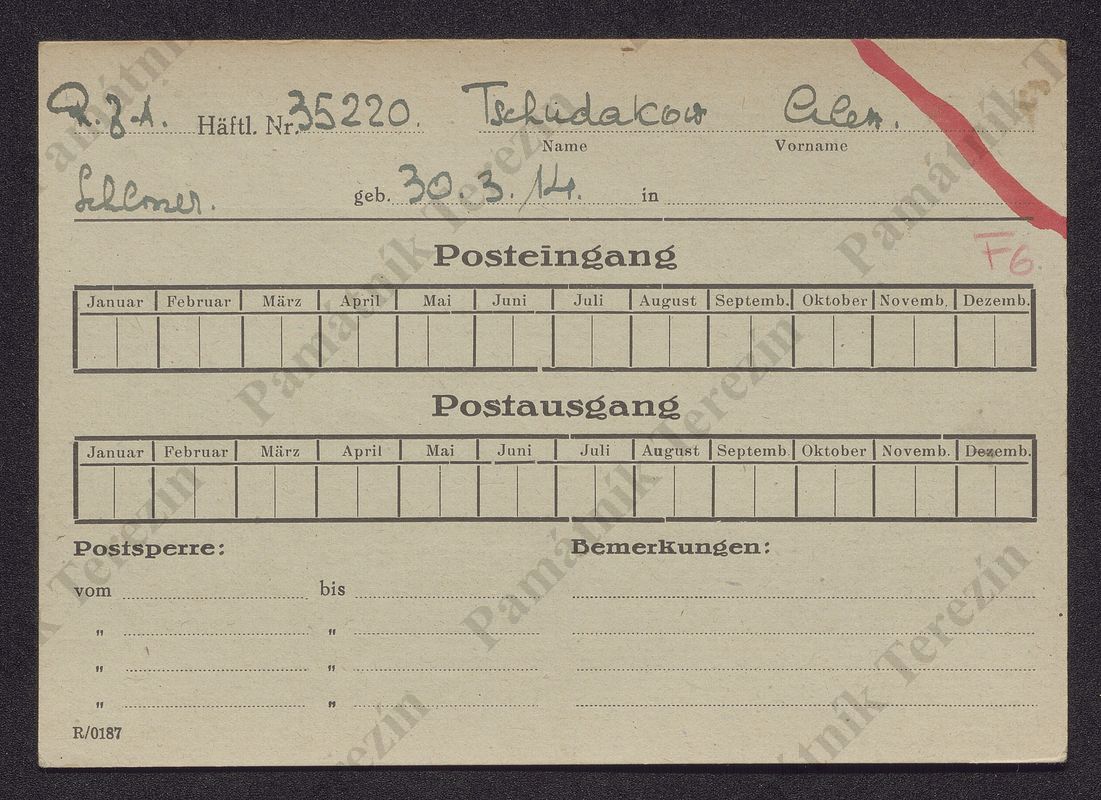 R. Z-A. Häftl. Nr. 35220. Tschudakow Alex.
Name Vorname
Schlosser. geb. 30. 3. 14. in
F6.
Posteingang
Januar Februar März April Mai Juni Juli August Septemb. Oktober Novemb. Dezemb.
Postausgang
Januar Februar März April Mai Juni Juli August Septemb. Oktober Novemb. Dezemb.
Postsperre: Bemerkungen:
vom bis
„ „
„ „
„ „
R/0187
Památník Terezín